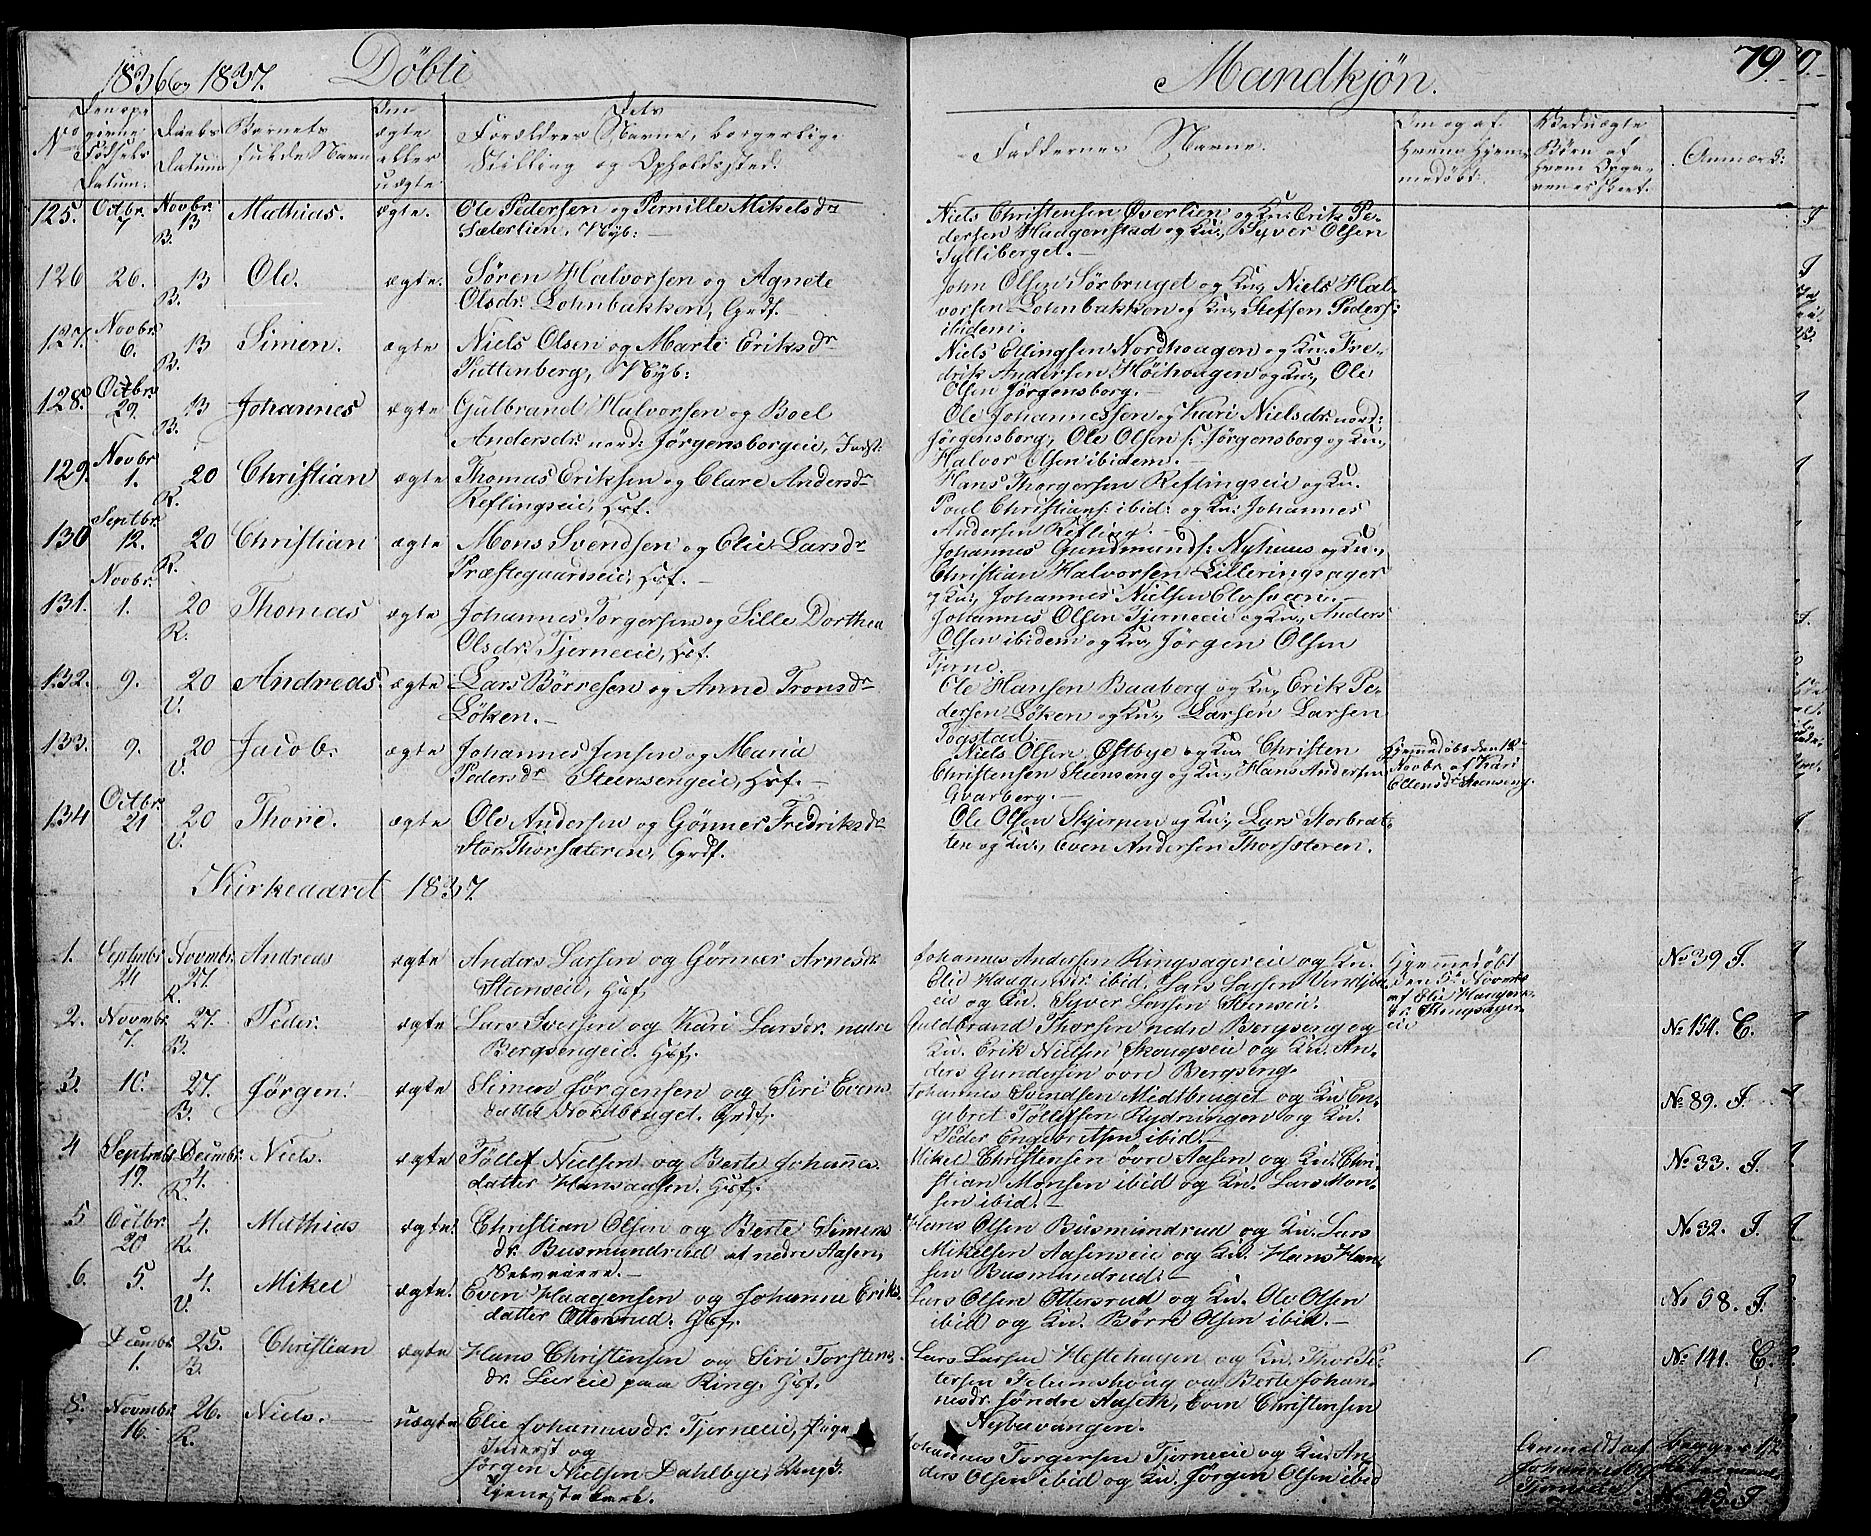 1836 og 1837. Döbte
Mandkjön. 79.
No
Den opgivne Födsels Datum:
Daabs Datum
Barnets fulde Navn
Om ægte eller uægte
Forældres Navne, borgerlige Stilling og Opholdssted.
Faddernes Navne.
Om og af hvem hjemmedöbt.
Anmærk:
125. Octbr. 7 Novbr. 13 B. Mathias. ægte. Ole Pedersen og Pernille Mikelsdr
Sæterlien, Nyb:
Niels Christensen Överlien og Ku: Erik Pe-
dersen Haagenstad og Ku:, Syver Olsen
Sylliberget.
126 26. 13 B. Ole. ægte. Sören Halvorsen og Agnete
Olsdr. Lohnbakken, Grdf.
John Olsen Sörbruget og Ku, Niels Hal-
vorsen Lohnbakken og Ku, Steffen Peders:
ibidem.
127. Novbr. 6. 13 B. Simen. ægte Niels Olsen og Marte Eriksdr
Kuttenberg, Nyb:
Niels Ellingsen Nordhaagen og Ku. Fre-
drik Andersen Höihaagen og Ku:, Ole
Olsen Jörgensborg.
128. Octbr. 29. 13 B. Johannes ægte Gulbrand Halvorsen og Boel
Andersdr. nord: Jörgensborgeie, Indst:
Ole Johannessen og Kari Nielsdr. nord:
Jörgensborg, Ole Olsen s: Jörgensborg og Ku:,
Halvor Olsen ibidem.
129. Novbr 1. 20 R. Christian ægte Thomas Eriksen og Clare Andersdr
Reflingseie, Hsf.
Hans Thorgersen Reflingseie og Ku.
Poul Christians: ibid: og Ku: Johannes
Andersen Refling.
130 Septbr. 12. 20 R. Christian ægte Mons Svendsen og Elie Larsdr
Præstegaardseie, Hsf.
Johannes Gundmunds: Nyhuus og Ku.,
Christian Halvorsen Lilleringsager
og Ku:, Johannes Nielsen
131. Novbr. 1. 20 R. Thomas ægte Johannes Torgersen og Sille Dorthea
Olsdr. Tjerneeie, Hsf.
Johannes Olsen Tjerneeie og Ku:, Anders
Olsen ibidem og Ku, Jörgen Olsen
Tjerne.
132. 9. 20 V. Andreas. ægte Lars Börresen og Anne Tronsdr
Löken.
Ole Hansen Baaberg og Ku, Erik Pe-
dersen Löken og Ku, Larsen Larsen
Togstad.
133. 9. 20 V. Jacob. ægte Johannes Jensen og Maria
Pedersdr Steensengeie, Hsf.
Niels Olsen Östbye og Ku, Christen
Christensen Steenseng og Ku, Hans Andersen
Gvarberg.
Hjemmedöbt den 12
Novbr. af Kari
Ellensdr. Steenseng.
134 Octbr. 21 20 V. Thore. ægte Ole Andersen og Gönner Fredriksdr
Stor Thorsæteren, Grdf.
Ole Olsen Skjerpen og Ku, Lars Storbrat-
ten og Ku, Even Andersen Thorsæteren.
Kirkeaaret 1837.
1. Septmbr 24 Novmbr. 27. R. Andreas ægte Anders Larsen og Gönnar Arnesdr
Steenseie, Hsf.
Johannes Andersen Ringsagereie og Ku.
Elie Haagensdr. ibid. Lars Larsen
eie og Ku. Syver Larsen Stenseie.
Hjemmedöbt
den 5te Novbr.
af Elie Haagens-
dr. Ringsager-
eie
No 39 I.
2. Novmbr. 7. 27. B. Peder. ægte Lars Iversen og Kari Larsdr. nedre
Bergsengeie. Hsf.
Guldbrand Thorsen nedre Bergseng og
Ku. Erik Nielsen Skougseie og Ku. An-
ders Gundersen övre Bergseng.
No 154. C.
3. 10. 27. B. Jörgen. ægte Simen Jörgensen og Siri Evens
datter Nordbruget. Grdf.
Johannes Svendsen Midtbruget og Ku En-
gebret Töllefsen Rydningen og Ku.
Peder Engebretsen ibid.
No 89. I.
4 Septmbr 19. Decmbr. 4. R. Niels. ægte Töllef Nielsen og Berte Johannes
datter Hansaasen. Hsf.
Mikel Christensen övre Aasen og Ku. Chri-
stian Monsen ibid og Ku. Lars Mon-
sen ibid.
No 33. I.
5 Octbr. 20 4. R. Mathias ægte. Christian Olsen og Berte Simens
dr. Busmundrud at nedre Aasen,
Selveiere.
Hans Olsen Busmundrud og Ku. Lars
Mikelsen Aasenseie og Ku. Hans Han-
sen Busmundrud.
No 32. I.
6. 5. 4. V. Mikel ægte. Even Haagensen og Johanne Eriks-
datter Ottersrud. Hsf.
Lars Olsen Ottersrud og Ku. Ole Olsen
ibid og Ku. Börre Olsen ibid.
No 58. I.
Decmbr 1. 25. B. Christian ægte Hans Christensen og Siri Torstens-
dr. Lureie paa Ring. Hsf.
Lars Larsen Hestehagen og Ku. Thor Pe-
tersen og Berte Johan-
nesdr. söndre Aaseth, Even Christensen
Nybuvangen.
No 141. C.
8. Novmbr. 16. 26. R. Niels. uægte Elie Johannesdr. Tjerneeie, Pige
Inderst og
Jörgen Nielsen Dahlbye, Ungk.
Tjenestekarl.
Johannes Torgersen Tjerneeie og Ku. An-
ders Olsen ibid og Ku. Jörgen Olsen ibid
Anmeldt af
No 45. I.